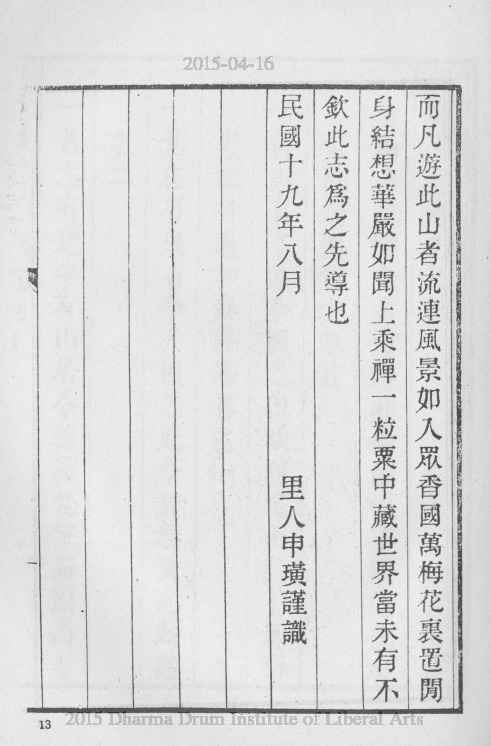 2015-04-16
而凡遊此山者流連風景如入眾香國萬梅花裏置閒
身結想華嚴如聞上乘禪一粒粟中藏世界當未有不
欽此志爲之先導也
民國十九年八月
里人申璜謹識
13
2015 Dharma Drum Institute of Liberal Arts